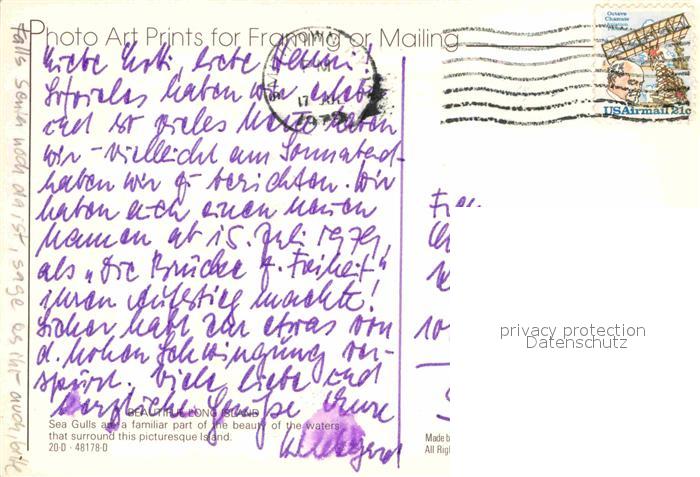 Photo Art Prints for Framing or Mailing
Liebe Lotti, liebe Henni!
So vieles haben wir erlebt
und so vieles Neue haben
wir - vielleicht am Sonnabend -
haben wir z. berichten. Wir
haben auch einen neuen
Namen ab 15. Juli 1979,
als „Die Brücke z. Freiheit“
ihren Aufstieg machte!
Sicher habt Ihr etwas von
d. hohen Schwingung ver-
spürt. Viele liebe und
herzliche Grüße Eure
Hildegard
Falls noch da ist, sage es ihr auch, bitte
BEAUTIFUL LONG ISLAND
Sea Gulls are a familiar part of the beauty of the waters
that surround this picturesque Island.
20-D · 48178-D
Octave
Chanute
Aviation
Pioneer
USAirmail 21c
17
1979
10
privacy protection
Datenschutz
Made b
All Rig